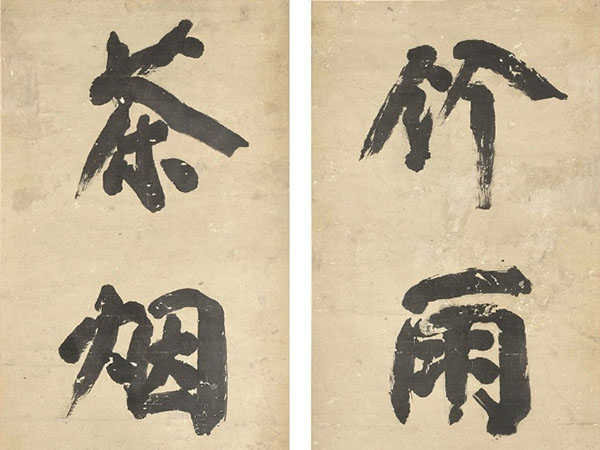 竹雨
茶烟